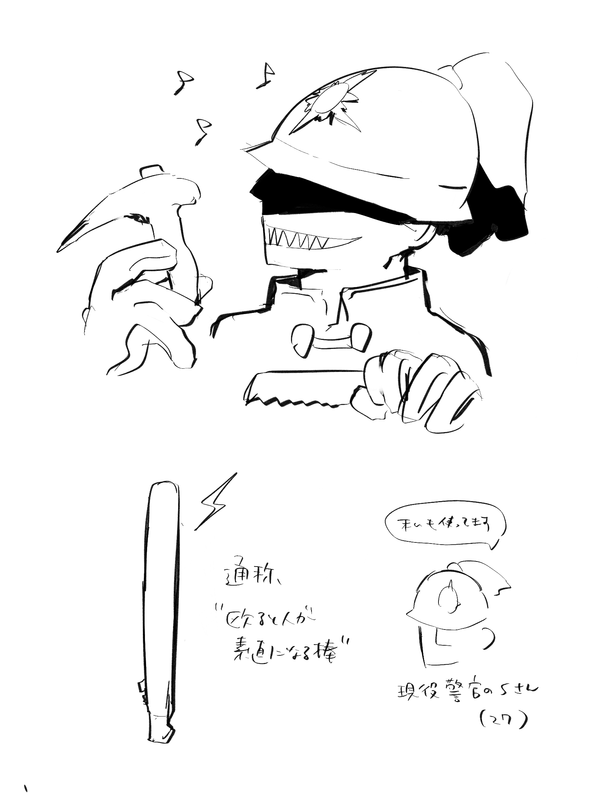 通称、
"殴ると人が
素直になる棒"
まいも使ってます
現役警官のSさん
(27)